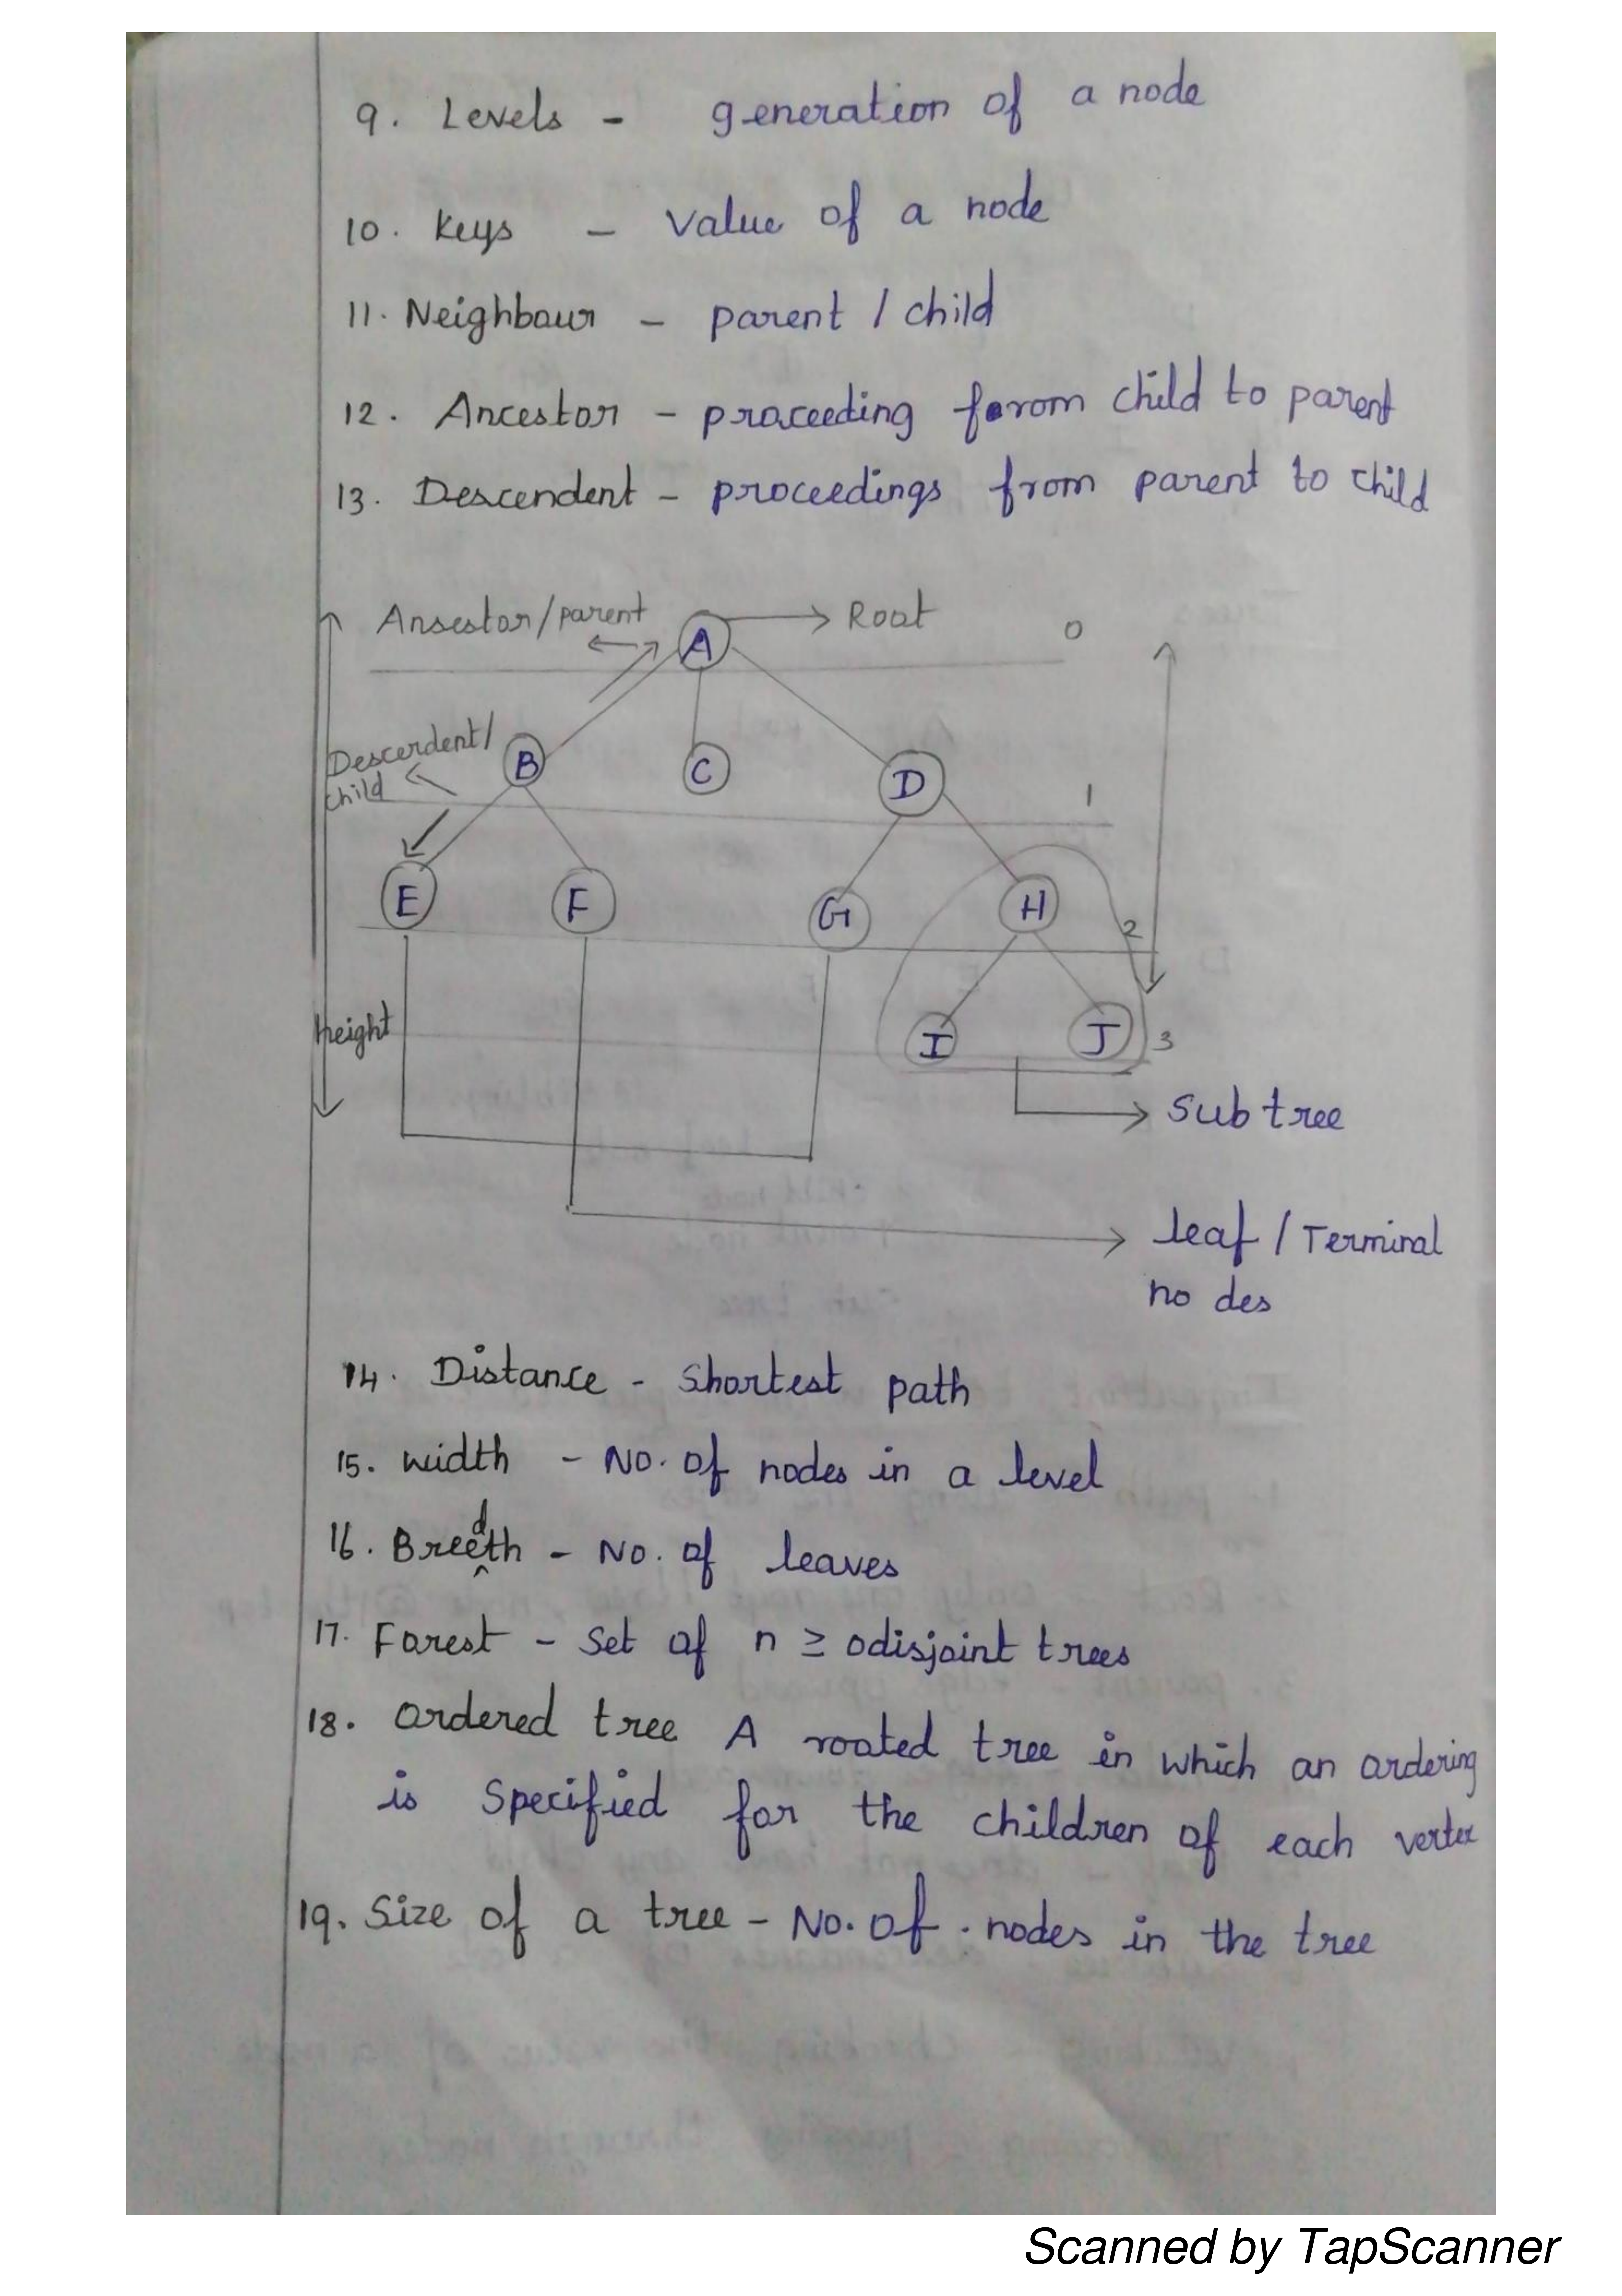 9. Levels - generation of a node
10. Keys - Value of a node
11. Neighbour - parent / child
12. Ancestor - proceeding from child to parent
13. Descendent - proceedings from parent to child
Ansestor/parent
A
Root
0
Descerdent/
child
B
C
D
1
E
F
G
H
2
Height
I
J
3
Sub tree
leaf / Terminal
no des
14. Distance - Shortest path
15. width - No. of nodes in a level
16. Breedth - No. of leaves
17. Forest - Set of n ≥ 0disjoint trees
18. Ordered tree A rooted tree in which an ordering
is Specified for the children of each vertex
19. Size of a tree - No. of . nodes in the tree
Scanned by TapScanner